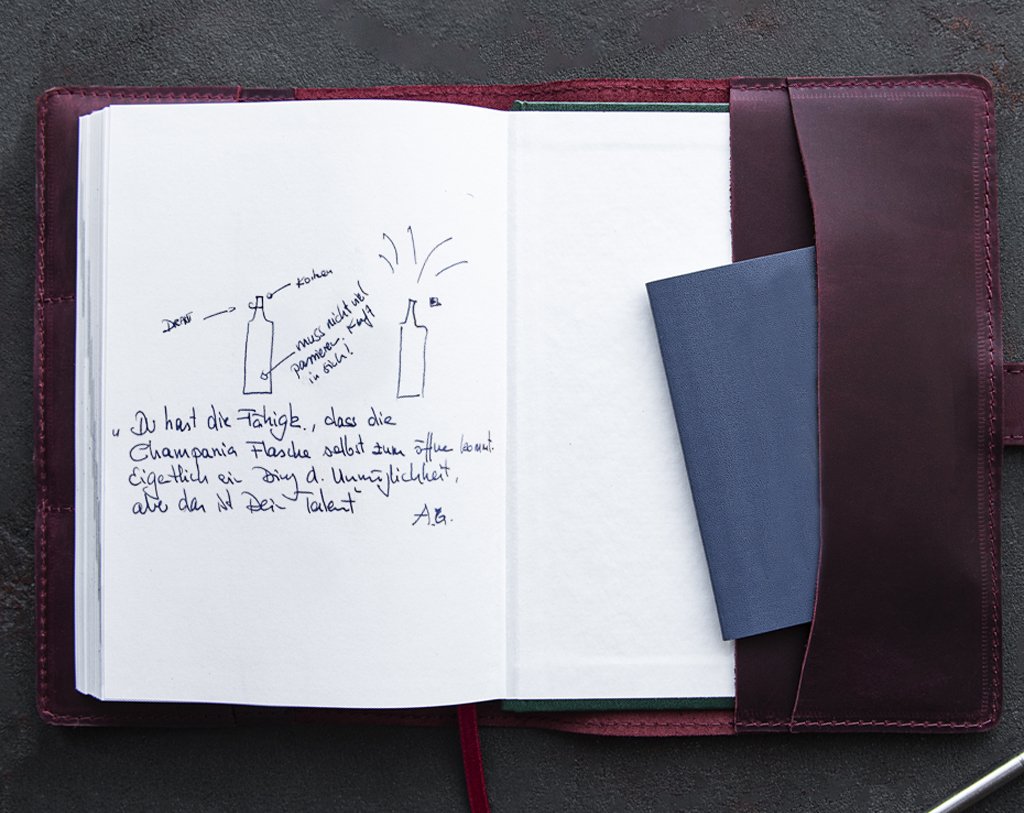 Korken
Draht
muss nicht viel
passieren. Kraft
in sich!
„Du hast die Fähigk., dass die
Champania Flasche selbst zum öffne kommt.
Eigentlich ein Ding d. Unmöglichkeit,
aber das ist Dein Talent"
A.G.